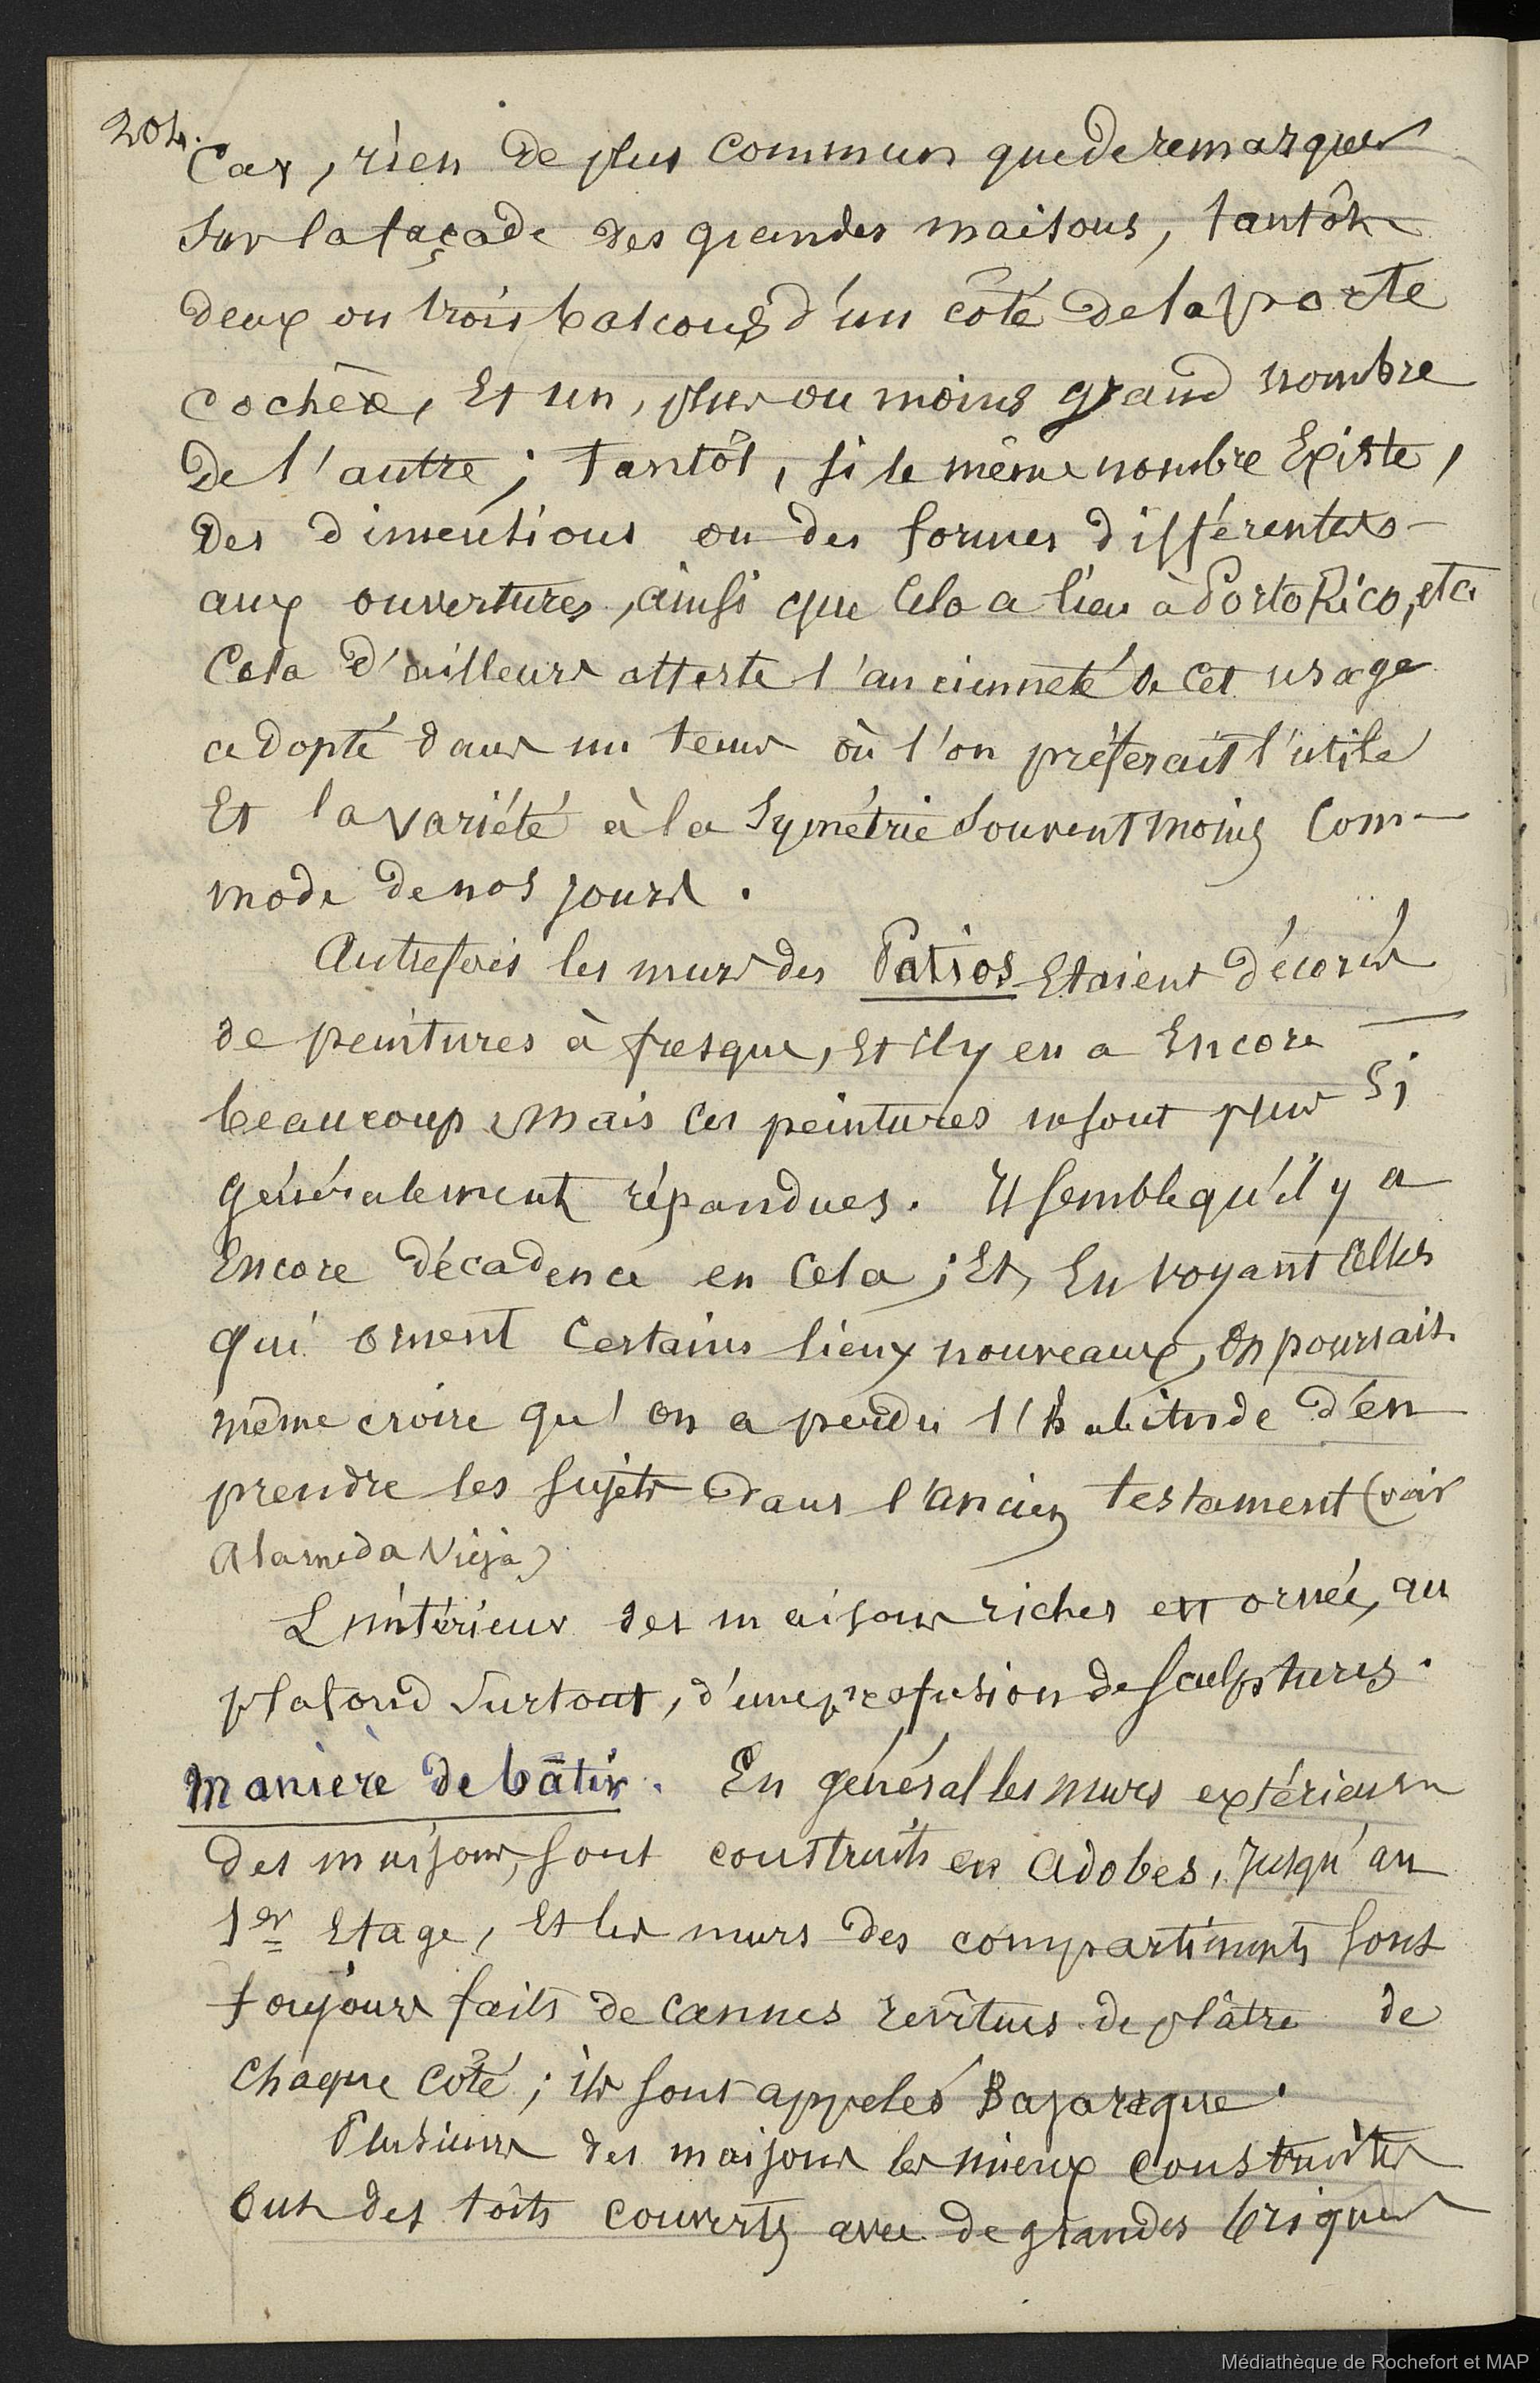 204.
Car, rien de plus commun que de remarquer
Sur la façade des grandes maisons, tantôt
deux ou trois balcons d'un côté de la porte
cochère, Et un, plus ou moins grand nombre
de l'autre ; tantôt, si le même nombre Existe,
des dimentions ou des formes différentes
aux ouvertures, ainsi que Cela a lieu à PortoRico, etc
Cela d'ailleurs atteste l'ancienneté de Cet usage
adopté dans un tems où l'on préferait l'utile
Et la variété à la Symétrie Souvent moins Com-
mode de nos jours.
Autrefois les murs des Patios Etaient décorés
de peintures à fresque, Et il y en a Encore
beaucoup mais ces peintures ne sont plus si
généralement répandues. Il semble qu'il y a
Encore décadence en Cela ; Et, En voyant Celles
qui ornent Certains lieux nouveaux, On pourrait
même croire qu'on a perdu l'habitude d'en
prendre les sujets dans l'ancien testament (voir
Alameda Vieja)
L'intérieur des maisons riches est ornée, au
plafond Surtout, d'une profusion de sculptures.
Manière de bâtir. En général les murs extérieurs
des maisons, sont construits en Adobes, Jusqu'au
1er Etage, Et les murs des compartiments sont
toujours faits de Cannes revêtues de plâtre de
Chaque Côté ; ils sont appelés Bajareque.
Plusieurs des maisons les mieux construites
Ont des toîts couverts avec de grandes briques
Médiathèque de Rochefort et MAP